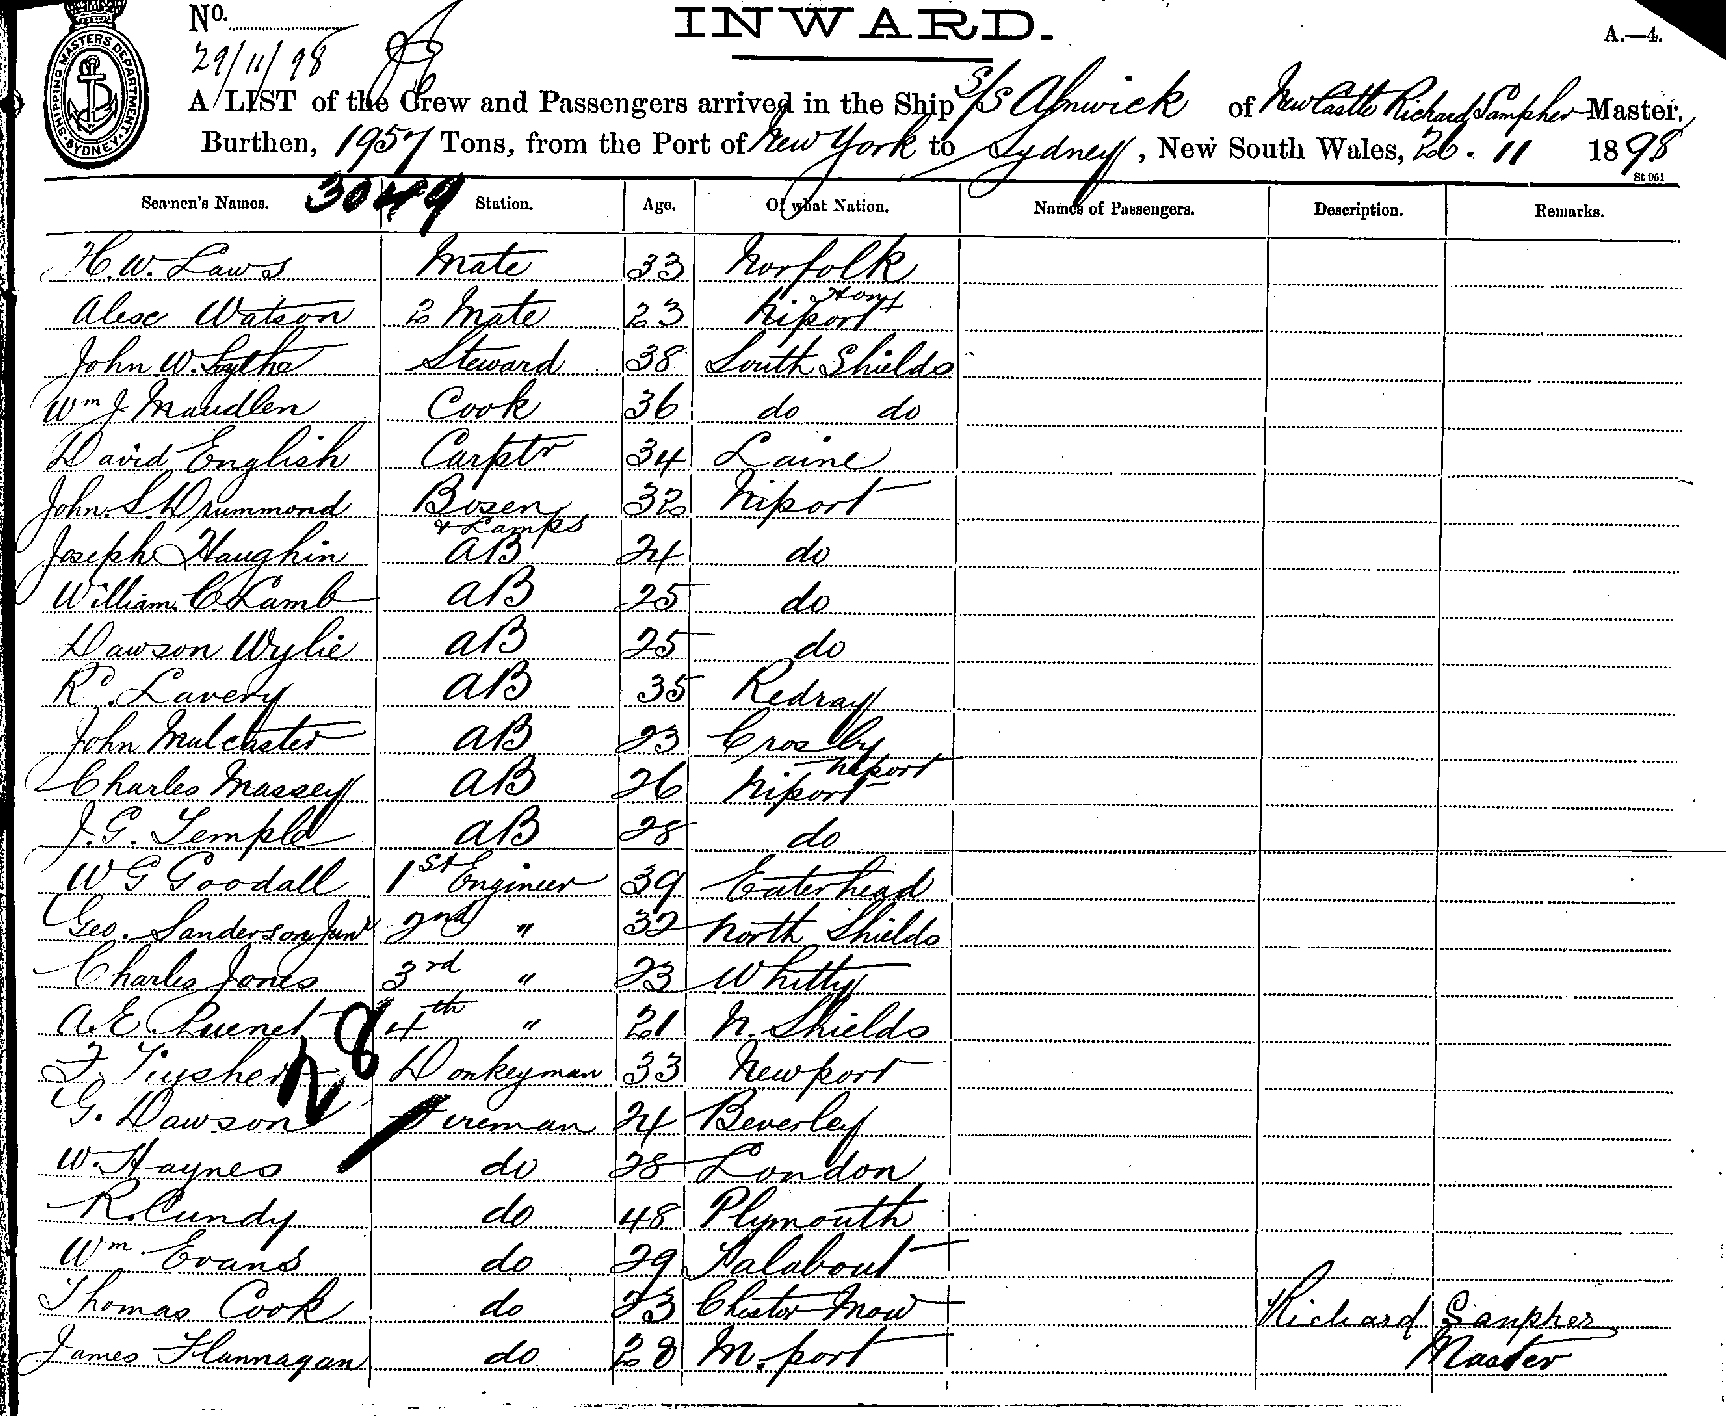 No.
INWARD.
A.—4.
29/11/98
SHIPPING MASTERS DEPARTMENT SYDNEY
A LIST of the Crew and Passengers arrived in the Ship S/S Alnwick of NewCastle Richard Sampher Master,
Burthen, 1957 Tons, from the Port of New York to Sydney, New South Wales, 26. 11 1898
St 961
3049
Seamen's Names. Station. Age. Of what Nation. Names of Passengers. Description. Remarks.
H. W. Laws Mate 33 Norfolk
Alex Watson 2 Mate 23 Niport
John W. 38 Steward South Shields
Wm J Maudlen Cook 36 do do
David English Carptr 34 Laine
John S. Drummond Bosen & Lamps 32 Niport
Joseph Haughin AB 24 do
William C Lamb AB 25 do
Dawson Wylie AB 25 do
R. Lavery AB 35 Redray
John Mulcaster AB 23 Crosby
Charles Massey AB 26 Niport Neport
J. G. Temple AB 28 do
W G Goodall 1st Engineer 39 Eaterhead
Geo. Sanderson Junr 2nd " 32 North Shields
Charles Jones 3rd " 23 Whitty
A. E. 4th " 21 N. Shields
28
Donkeyman 33 Newport
G. Dawson Fireman 24 Beverley
W. Haynes do 28 London
R. Cundy do 48 Plymouth
Wm Evans do 29 Falabout
Thomas Cook do 23 Chester Mow
Richard Sanpher
James Flannagan do 28 M. port
Master